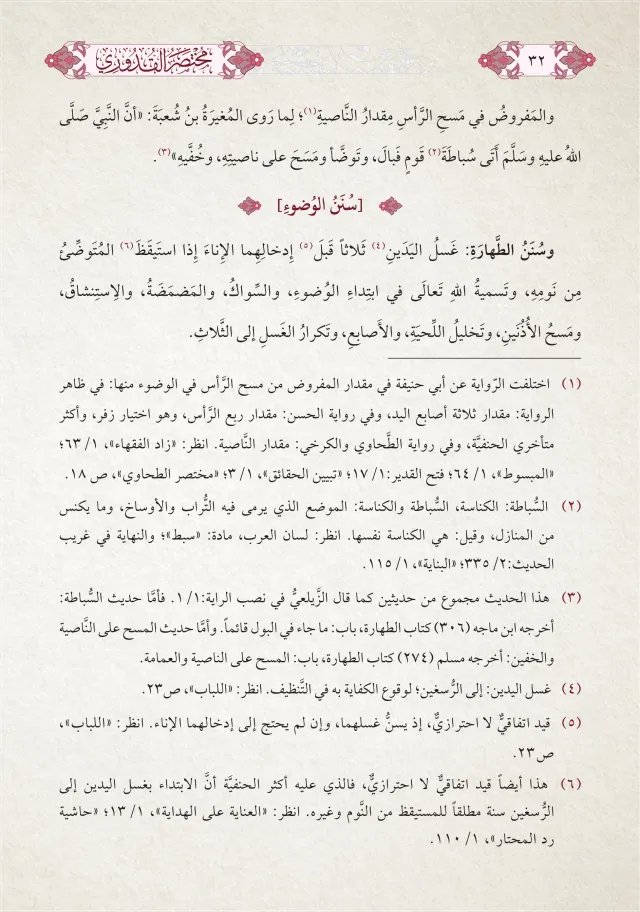 ٣٢
مختصر القدوري
والمَفروضُ في مَسحِ الرَّأسِ مِقدارُ النَّاصيةِ(١)؛ لِما رَوى المُغيرَةُ بنُ شُعبَةَ: «أنَّ النَّبِيَّ صَلَّى
اللهُ عليهِ وسَلَّمَ أَتَى سُباطَةَ(٢) قَومٍ فَبالَ، وتَوضَّأ ومَسَحَ على ناصيتِهِ، وخُفَّيهِ»(٣).
[سُنَنُ الوُضوءِ]
وسُنَنُ الطَّهارَةِ: غَسلُ اليَدَينِ(٤) ثَلاثاً قَبلَ(٥) إدخالِهِما الإناءَ إذا استَيقَظَ(٦) المُتَوضِّئُ
مِن نَومِهِ، وتَسميةُ اللهِ تَعالَى في ابتِداءِ الوُضوءِ، والسِّواكُ، والمَضمَضَةُ، والِاستِنشاقُ،
ومَسحُ الأُذُنَينِ، وتَخليلُ اللِّحيَةِ، والأَصابعِ، وتَكرارُ الغَسلِ إلى الثَّلاثِ.
(١) اختلفت الرّواية عن أبي حنيفة في مقدار المفروض من مسح الرَّأس في الوضوء منها: في ظاهر
الرواية: مقدار ثلاثة أصابع اليد، وفي رواية الحسن: مقدار ربع الرَّأس، وهو اختيار زفر، وأكثر
متأخري الحنفيَّة، وفي رواية الطَّحاوي والكرخي: مقدار النَّاصية. انظر: «زاد الفقهاء»، ١/ ٦٣؛
«المبسوط»، ١/ ٦٤؛ فتح القدير: ١/ ١٧؛ «تبيين الحقائق»، ١/ ٣؛ «مختصر الطحاوي»، ص ١٨.
(٢) السُّباطة: الكناسة، السُّباطة والكناسة: الموضع الذي يرمى فيه التُّراب والأوساخ، وما يكنس
من المنازل، وقيل: هي الكناسة نفسها. انظر: لسان العرب، مادة: «سبط»؛ والنهاية في غريب
الحديث: ٢/ ٣٣٥؛ «البناية»، ١/ ١١٥.
(٣) هذا الحديث مجموع من حديثين كما قال الزَّيلعيُّ في نصب الراية: ١/ ١. فأمَّا حديث السُّباطة:
أخرجه ابن ماجه (٣٠٦) كتاب الطهارة، باب: ما جاء في البول قائماً. وأمَّا حديث المسح على النَّاصية
والخفين: أخرجه مسلم (٢٧٤) كتاب الطهارة، باب: المسح على الناصية والعمامة.
(٤) غسل اليدين: إلى الرُّسغين؛ لوقوع الكفاية به في التَّنظيف. انظر: «اللباب»، ص٢٣.
(٥) قيد اتفاقيٌّ لا احترازيٌّ، إذ يسنُّ غسلهما، وإن لم يحتج إلى إدخالهما الإناء. انظر: «اللباب»،
ص٢٣.
(٦) هذا أيضاً قيد اتفاقيٌّ لا احترازيٌّ، فالذي عليه أكثر الحنفيَّة أنَّ الابتداء بغسل اليدين إلى
الرُّسغين سنة مطلقاً للمستيقظ من النَّوم وغيره. انظر: «العناية على الهداية»، ١/ ١٣؛ «حاشية
رد المحتار»، ١/ ١١٠.